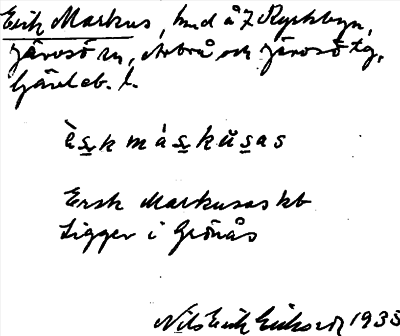 Erik Markus, hmd å 7 Kyrkbyn,
Järvsö sn, Arbrå och Järvsö tg,
Gävleb. l.
è̀s̲k más̲kŭs̲as
Ersk Markusas kb
Ligger i Grönås
Nils Erik Eriksson 1935